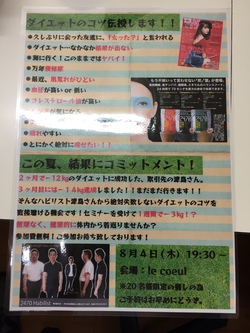 ダイエットのコツ伝授します！！
●久しぶりに会った友達に、「太った？」と言われる
●ダイエット…なかなか結果が出ない
●夏に行く！このままではヤバイ！
●万年便秘症
●最近、肌荒れがひどい
●血圧が高い or 低い
●コレステロール値が高い
●疲れやすい
●とにかく絶対に痩せたい！！
この夏、結果にコミットメント！
2ヶ月で－12kgのダイエットに成功した、取引先の津島さん。
3ヶ月目には－14kg達成しました！！まだまだ行きます！！
そんなハビリスト津島さんから絶対失敗しないダイエットのコツを
直接聴ける機会です！セミナーを受けて1週間で－3kg！？
無理なく、健康的に体内から若返りませんか？
参加費無料！ご参加お待ち致しております！
8月4日（木）19:30～
会場：le coeul
※20名様限定の催しの為
ご予約はお早めにどうぞ。
2470 Habilist